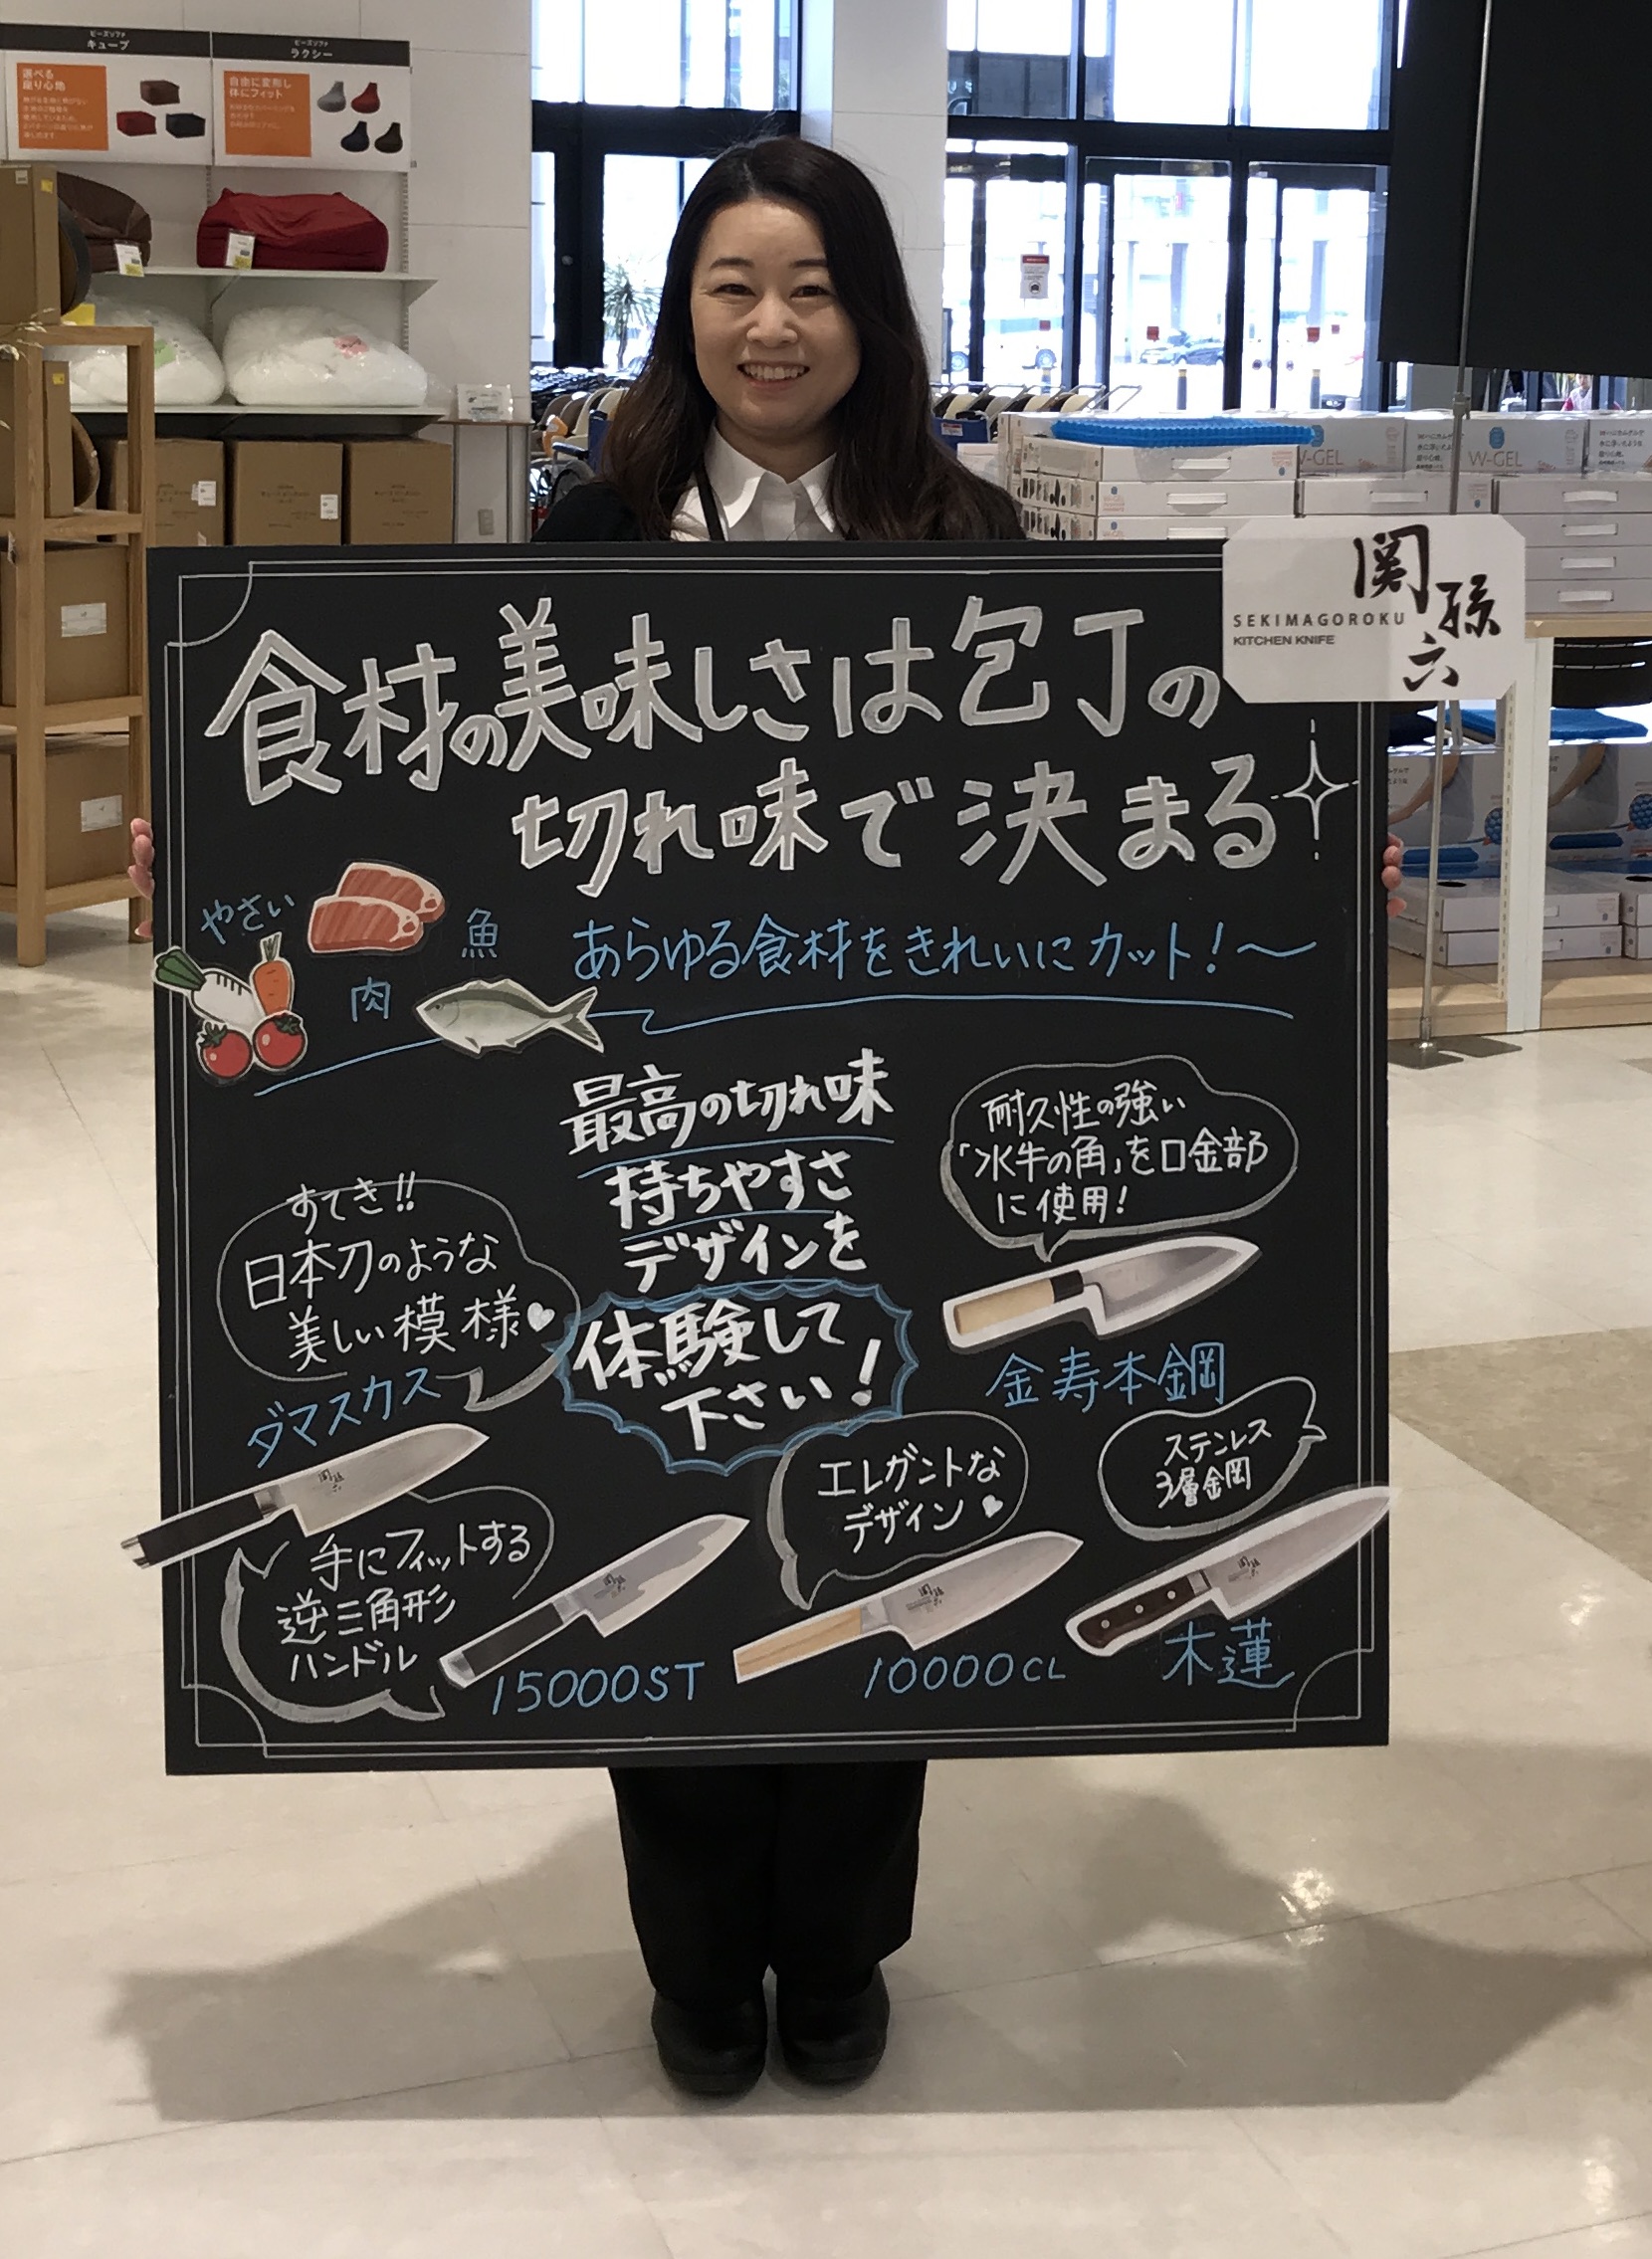 ビーズソファ
キューブ
ビーズソファ
ラクシー
選べる
座り心地
自由に変形し
体にフィット
関孫六
SEKIMAGOROKU
KITCHEN KNIFE
食材の美味しさは包丁の
切れ味で決まる
やさい
肉
魚
あらゆる食材をきれいにカット!〜
最高の切れ味
持ちやすさ
デザインを
体験して
下さい!
耐久性の強い
「水牛の角」を口金部
に使用!
金寿本鋼
すてき!!
日本刀のような
美しい模様♥
ダマスカス
手にフィットする
逆三角形
ハンドル
15000ST
エレガントな
デザイン♥
10000CL
ステンレス
3層鋼
木蓮
W-GEL
W-GEL